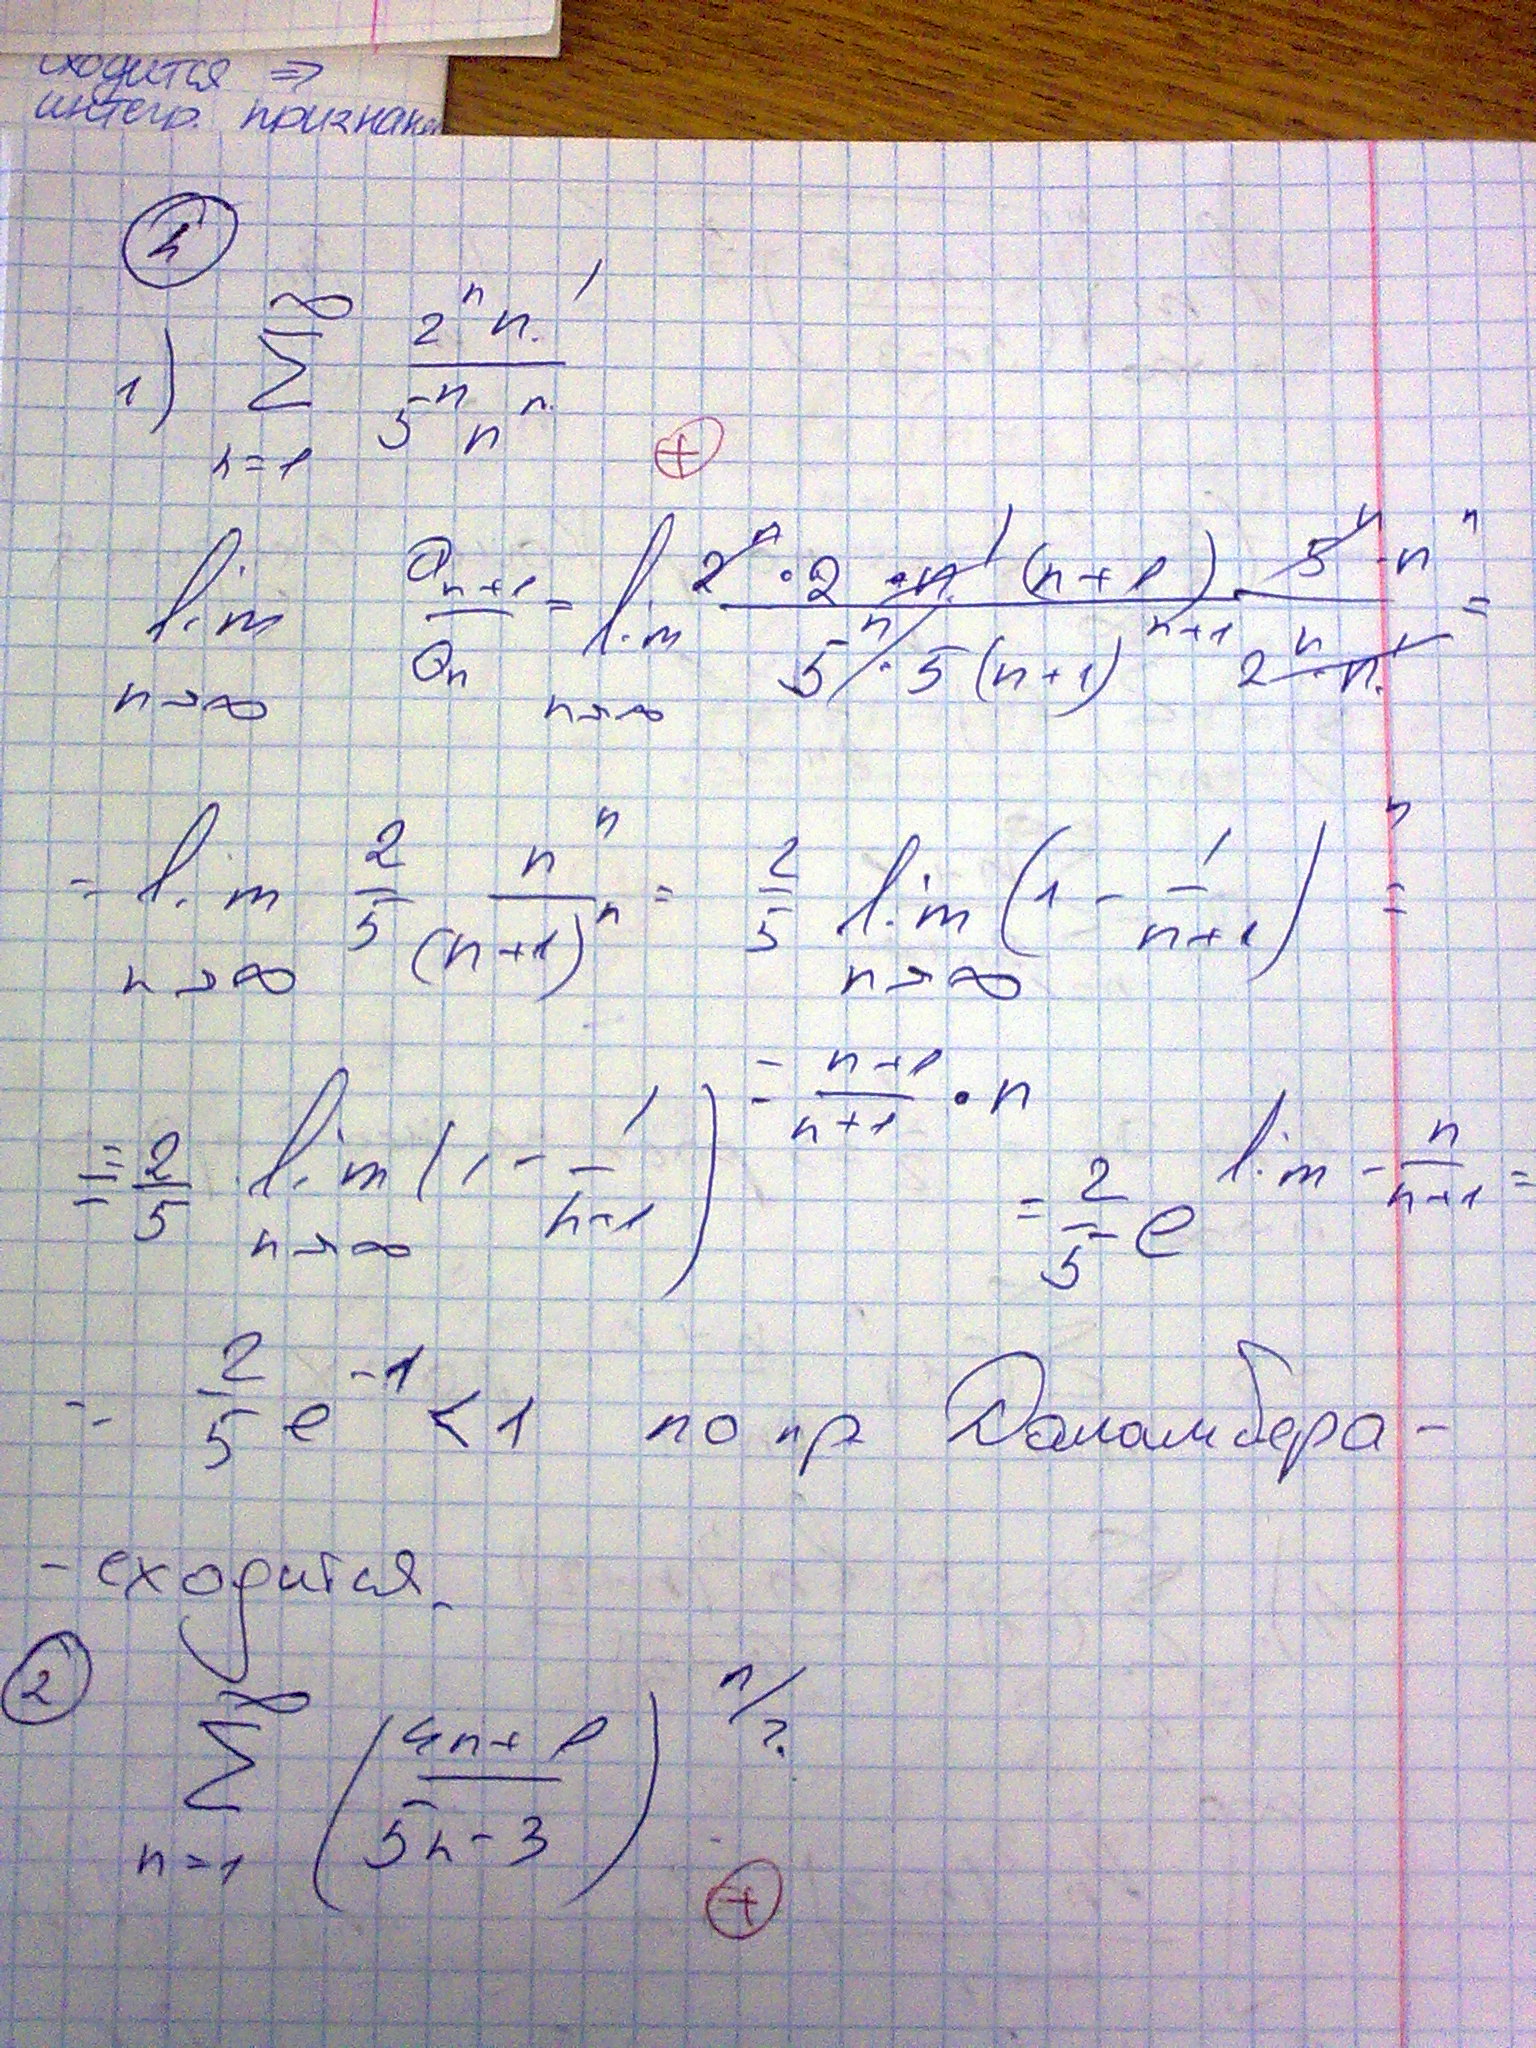 сходится ⇒
интегр. признак
1
1) ∑_{n=1}^{∞} \frac{2^n n!}{5^n n^n}
+
lim_{n→∞} \frac{a_{n+1}}{a_n} = lim_{n→∞} \frac{2^n · 2 · n! (n+1) · 5^n · n^n}{5^n · 5 (n+1)^{n+1} 2^n · n!} =
= lim_{n→∞} \frac{2}{5} \frac{n^n}{(n+1)^n} = \frac{2}{5} lim_{n→∞} (1 - \frac{1}{n+1})^n =
= \frac{2}{5} lim_{n→∞} (1 - \frac{1}{n+1})^{- \frac{n+1}{n+1} · n} = \frac{2}{5} e^{lim - \frac{n}{n+1}} =
= \frac{2}{5} e^{-1} < 1 по пр Даламбера -
- сходится.
2 ∑_{n=1}^{∞} (\frac{4n+1}{5n-3})^{n/2}
+